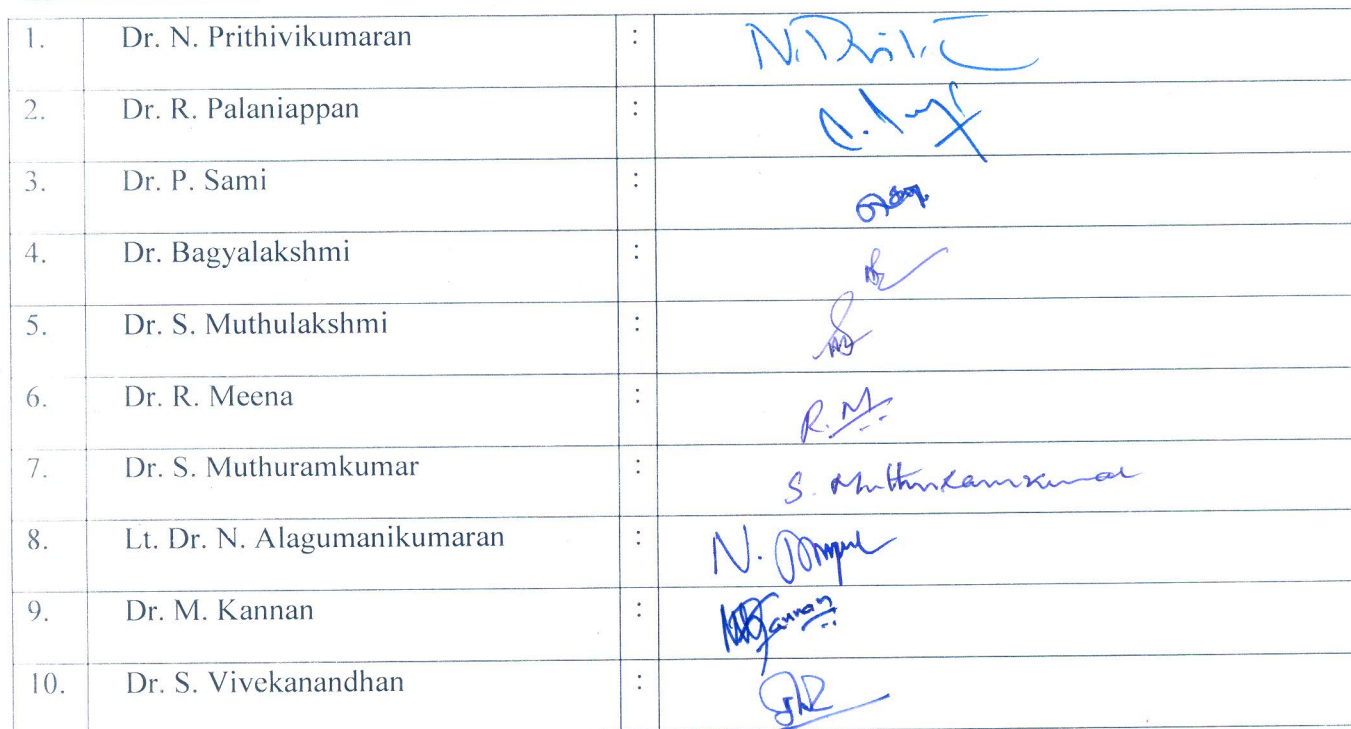 1. Dr. N. Prithivikumaran :
2. Dr. R. Palaniappan :
3. Dr. P. Sami :
4. Dr. Bagyalakshmi :
5. Dr. S. Muthulakshmi :
6. Dr. R. Meena : R. M
7. Dr. S. Muthuramkumar : S. Muthuramkumar
8. Lt. Dr. N. Alagumanikumaran : N.
9. Dr. M. Kannan : Kannan
10. Dr. S. Vivekanandhan :